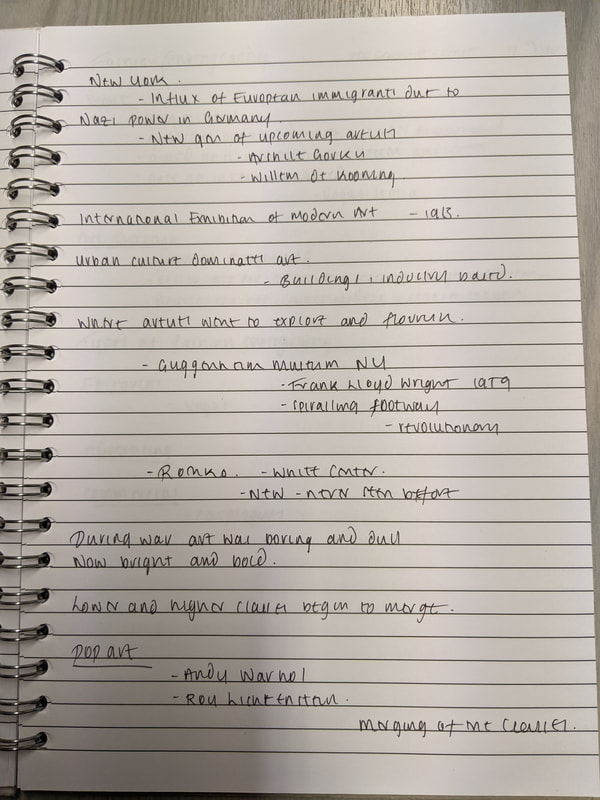 New York.
- Influx of European immigrants due to
Nazi power in Germany.
- New gen of upcoming artists
- Archile Gorky
- Willem De Kooning
International Exhibition of Modern Art - 1913.
Urban culture dominates art.
- Buildings, industry based.
Where artists went to explore and flourish.
- Guggenheim Museum NY
- Frank Lloyd Wright 1959
- spiralling footway
- revolutionary
- Rothko. - White Center.
- New - never seen before
During war art was boring and dull
Now bright and bold.
Lower and higher classes begin to merge.
Pop art
- Andy Warhol
- Roy Lichtenstein.
Merging of the classes.